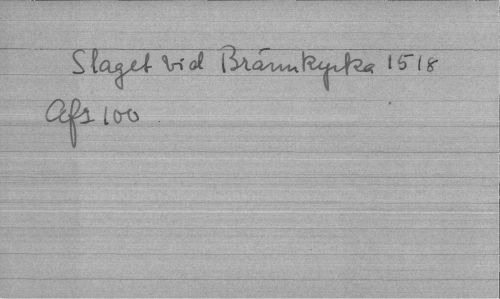 Slaget vid Brännkyrka 1518
Afs 100